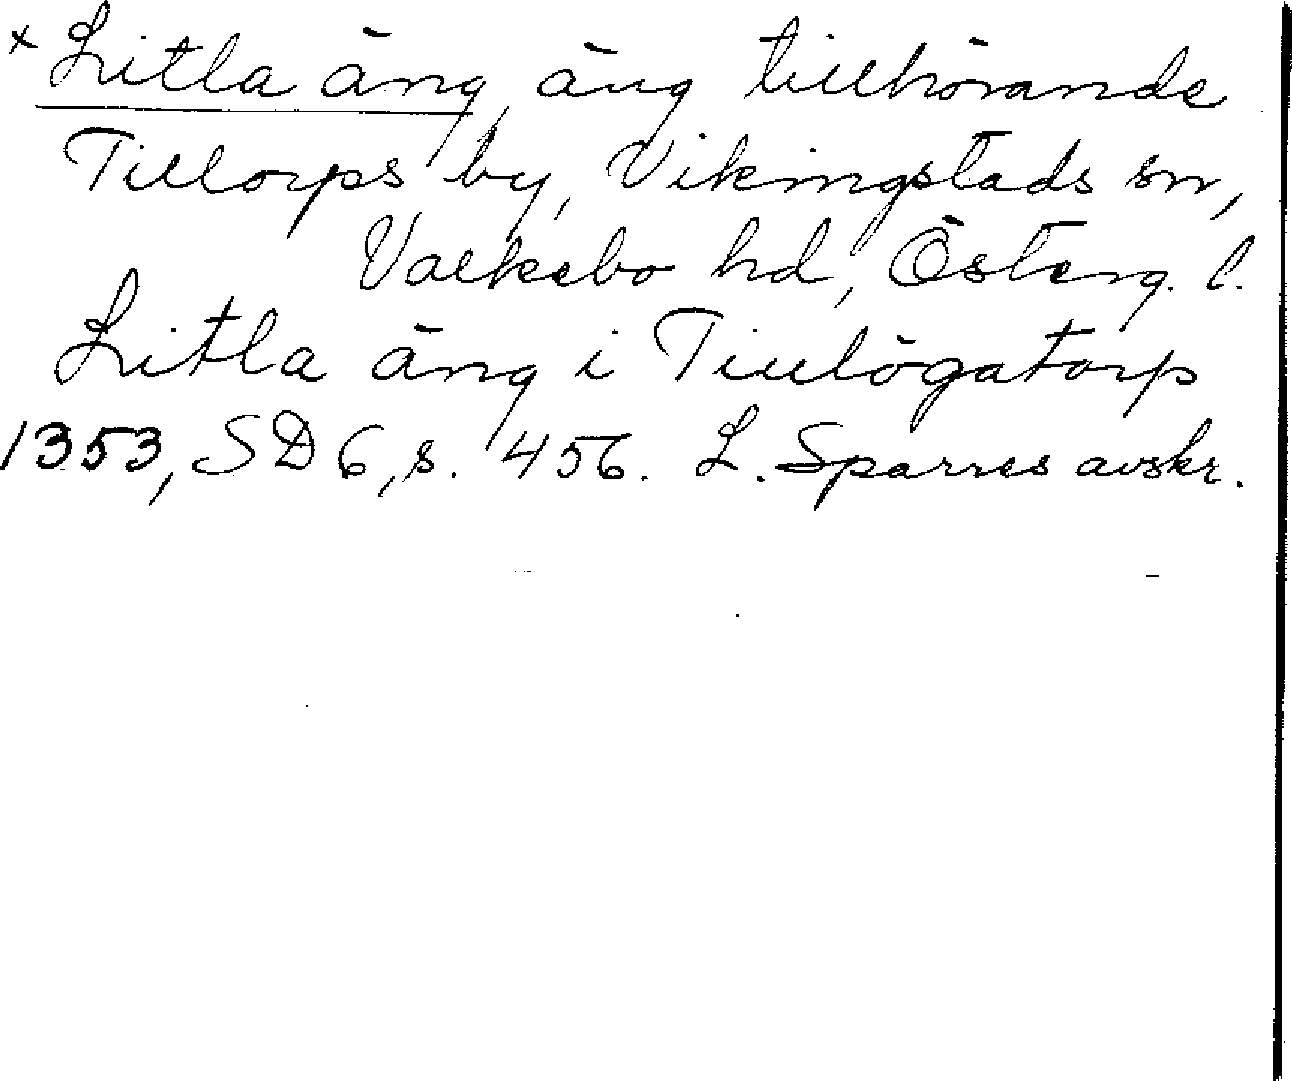 x Litla äng, äng tillhörande
Tillorps by, Vikingstads sn,
Valkebo hd, Österg. l.
Litla äng i Tiulögatorp
1353, SD 6, s. 456. L. Sparres avskr.